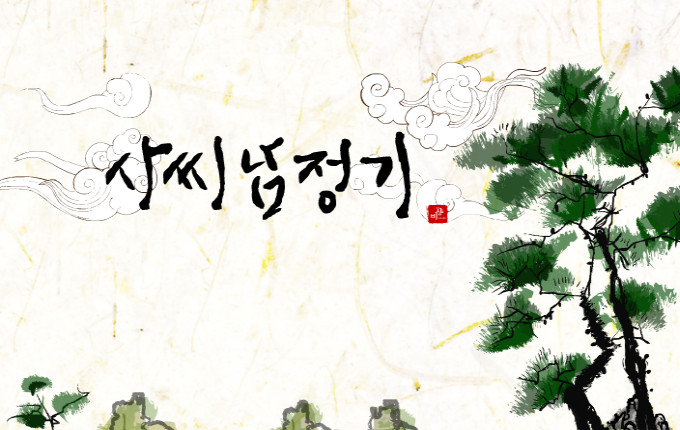 사씨남정기